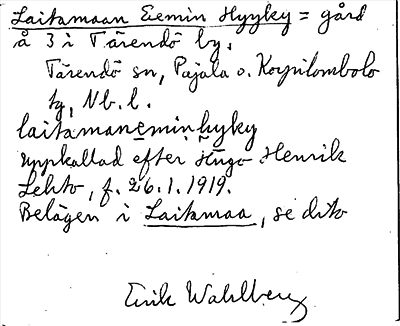 Laitamaan Eemin Hyyky = gård
å 3 i Tärendö by.
Tärendö sn, Pajala o. Korpilombolo
tg, Nb. l.
laitamaneminhyky
uppkallad efter Hugo Henrik
Lehto, f. 26.1.1919.
Belägen i Laitamaa, se dito
Erik Wahlberg